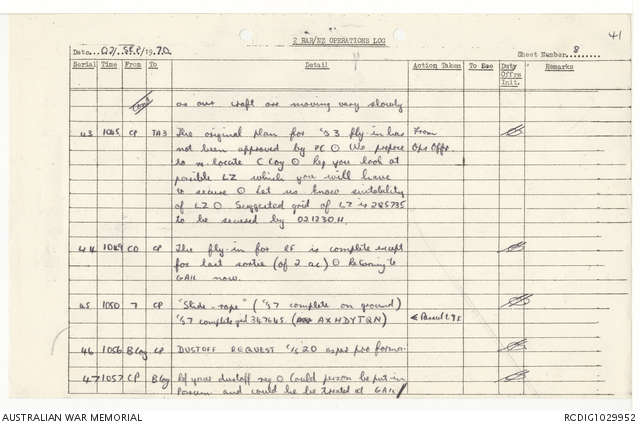 41
2 RAR/NZ OPERATIONS LOG
Date... 02/ SEP /19 70
Sheet Number 8
Serial Time From To Detail Action Taken To Bde Duty Offrs Init. Remarks
Cont as our craft are moving very slowly
43 1045 CP TA3 The original plan for 3 fly-in has From
not been approved by O We propose Ops Offr.
to re locate C Coy O Req you look at
possible LZ which you will have
to secure O Let us know suitability
of LZ O Suggested grid of LZ is 285735
to be secured by 021230H.
44 1049 CO CP The fly-in for is complete except
for last sortie (of 2 ac) O Returning to
GAIL now.
45 1050 7 CP "Slide-rope" ( 7 complete on ground)
7 complete grid 347645 ( AXHDYTQN)
46 1056 B Coy CP DUSTOFF REQUEST 20 as per pro forma.
47 1057 CP B Coy Ref your dustoff req O Could person be put in
and could he be treated at GAIL
AUSTRALIAN WAR MEMORIAL
RCDIG1029952